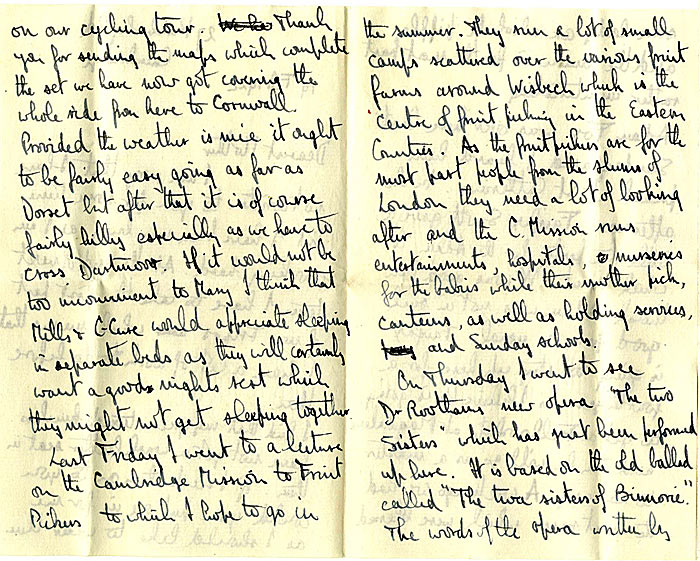 on our cycling tour. Thank
you for sending the maps which complete
the set we have now got covering the
whole ride from here to Cornwall.
Provided the weather is nice it ought
to be fairly easy going as far as
Dorset but after that it is of course
fairly hilly especially as we have to
cross Dartmoor. If it would not be
too inconvenient to Mary I think that
Mills & would appreciate sleeping
in separate beds as they will certainly
want a good nights rest which
they might not get sleeping together.
Last Friday I went to a lecture
on the Cambridge Mission to Fruit
Pickers to which I hope to go in
the summer. They run a lot of small
camps scattered over the various fruit
farms around Wisbech which is the
centre of fruit picking in the Eastern
Counties. As the fruitpickers are for the
most part people from the slums of
London they need a lot of looking
after and the C. Mission runs
entertainments, hospitals, nurseries
for the babies while their mother pick,
canteens, as well as holding services,
and Sunday schools.
On Thursday I went to see
Dr Roothams new opera "The two
Sisters" which has just been performed
up here. It is based on the old ballad
called "The twa sisters of Binnorie."
The words of the opera written by